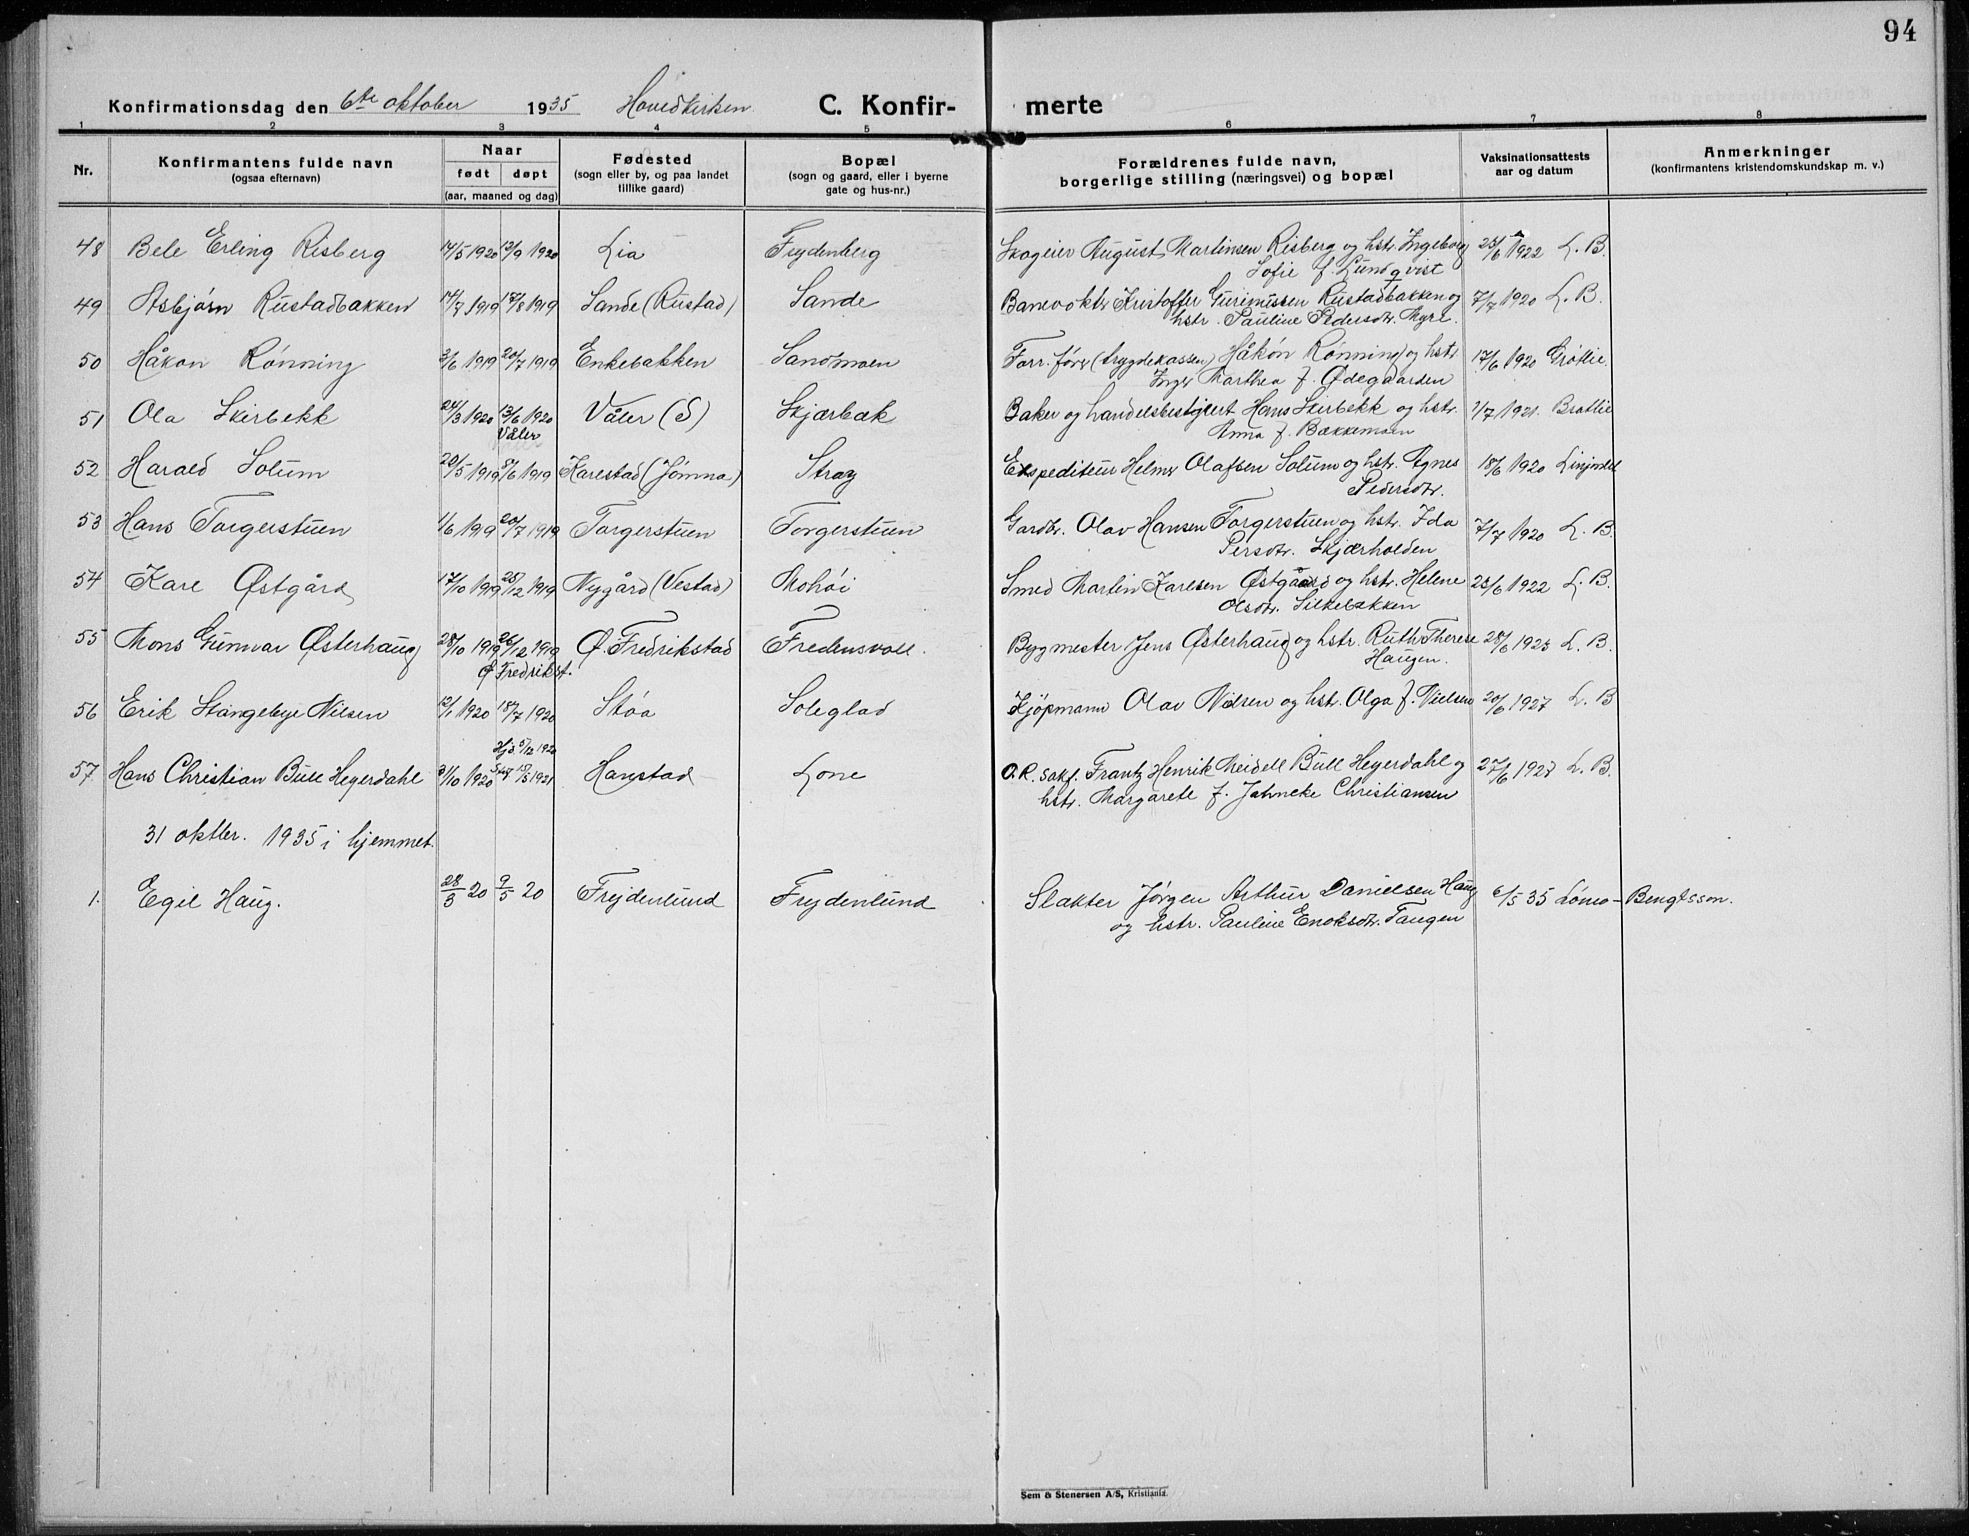 94
Konfirmationsdag den 6te oktober 1935 Hovedkirken C. Konfir- merte
1 2 3 4 5 6 7 8
Nr. Konfirmantens fulde navn (ogsaa efternavn) Naar født døpt (aar, maaned og dag) Fødested (sogn eller by, og paa landet tillike gaard) Bopæl (sogn og gaard, eller i byerne gate og hus-nr.) Forældrenes fulde navn, borgerlige stilling (næringsvei) og bopæl Vaksinationsattests aar og datum Anmerkninger (konfirmantens kristendomskundskap m. v.)
48 Bele Erling Risberg 14/5 1920 12/9 1920 Lia Frydenberg Skogeier August Martinsen Risberg og hstr. Ingeborg 23/6 1922 L. B.
Sofie f. Lundqvist
49 Asbjørn Rustadbakken 14/7 1919 17/8 1919 Sande (Rustad) Sande Banevokter Kristoffer Rustadbakken og 7/7 1920 L. B.
hstr. Pauline Pedersdtr. Myre.
50 Håkon Rønning 3/6 1919 20/7 1919 Enkebakken Sandmoen Forr. fører (trygdekassen) Håkon Rønning og hstr. 17/6 1920 Grøtlie.
Inger Marthea f. Ødegaarden
51 Ola Skirbekk 24/3 1920 13/6 1920 Våler (S) Skjærbæk Baker og handelsbestyrer Hans Skirbekk og hstr. 1/7 1921. Brattlie
Våler Anna f. Bakkemoen
52 Harald Solum 20/5 1919 5/6 1919 Karestad (Jømna) Stray Ekspeditør Helmer Olafsen Solum og hstr. Agnes 18/6 1920 Linjordet
Pedersdtr.
53 Hans Torgerstuen 1/6 1919 20/7 1919 Torgerstuen Torgerstuen Gardbr. Olav Hansen Torgerstuen og hstr. Ida 7/7 1920 L. B.
Persdtr. Skjærholden
54 Kare Østgård 17/10 1919 25/12 1919 Nygård (Vestad) Mohøi Smed Martin Karlsen Østgård og hstr. Helene 23/6 1922 L. B.
Olsdtr. Silkebækken
55 Mons Gunnar Østerhaug 28/10 1919 26/12 1919 Ø. Fredrikstad Fredensvoll. Bygmester Jens Østerhaug og hstr. Ruth Therese 28/6 1923 L. B.
Ø Fredrikst. Haugen.
56 Erik Stangebye Nilsen 12/1 1920 18/7 1920 Støa Soleglad Kjøpmann Olav Nilsen og hstr. Olga f. Nielsen 20/6 1927 L. B
Hjd. 5/12 1920
57 Hans Christian Bull Heyerdahl 31/10 1920 15/5 1921 Hanstad Lone O.R. sakf. Frantz Henrik Meidell Bull Heyerdahl og 27/6 1927 L. B.
hstr. Margarete f. Jahncke Christiansen
31 oktber. 1935 i hjemmet.
1. Egil Haug. 28/3 20 9/5 20 Frydenlund Frydenlund Slakter Jørgen Arthur Danielsen Haug 6/5 35 Lømo - Bengtsson.
og hstr. Pauline Enoksdtr. Taugen
Sem & Stenersen A/S, Kristiania.